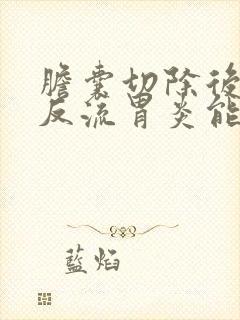 膽囊切除後
反流胃炎能
藍焰